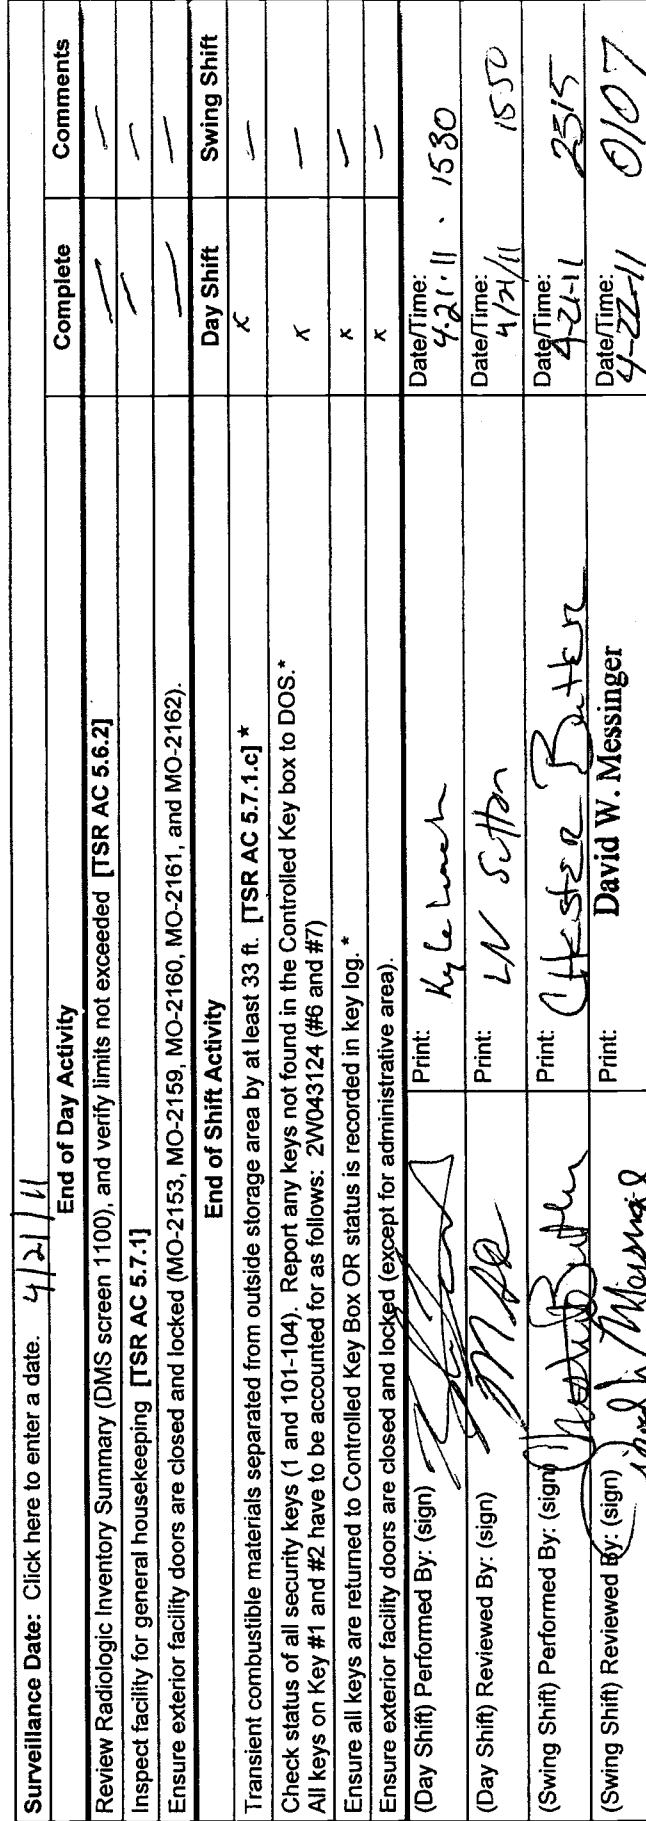 Surveillance Date: Click here to enter a date. 4/21/11
End of Day Activity Complete Comments
Review Radiologic Inventory Summary (DMS screen 1100), and verify limits not exceeded [TSR AC 5.6.2]
Inspect facility for general housekeeping [TSR AC 5.7.1]
Ensure exterior facility doors are closed and locked (MO-2153, MO-2159, MO-2160, MO-2161, and MO-2162).
End of Shift Activity Day Shift Swing Shift
Transient combustible materials separated from outside storage area by at least 33 ft. [TSR AC 5.7.1.c] * x
Check status of all security keys (1 and 101-104). Report any keys not found in the Controlled Key box to DOS.* x
All keys on Key #1 and #2 have to be accounted for as follows: 2W043124 (#6 and #7)
Ensure all keys are returned to Controlled Key Box OR status is recorded in key log. * x
Ensure exterior facility doors are closed and locked (except for administrative area). x
(Day Shift) Performed By: (sign) Print: Kyle Date/Time: 4.21.11 . 1530
(Day Shift) Reviewed By: (sign) Print: LN Sutton Date/Time: 4/21/11 1550
(Swing Shift) Performed By: (sign) Chester Butler Print: Chester Butler Date/Time: 4-21-11 2315
(Swing Shift) Reviewed By: (sign) Print: David W. Messinger Date/Time: 4-22-11 0107